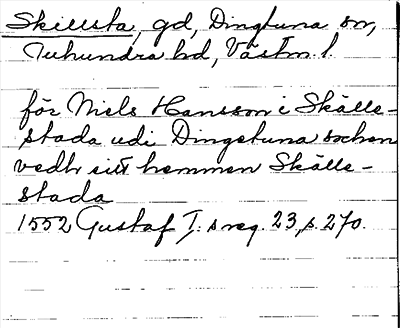 Skillsta, gd, Dingtuna sn,
Tuhundra hd, Västm. l.
för Niels Hansson i Skälle-
stada udi Dingetuna sochen
vedh sitt hemman Skälle-
stada
1552 Gustaf I:s reg. 23, s. 270.